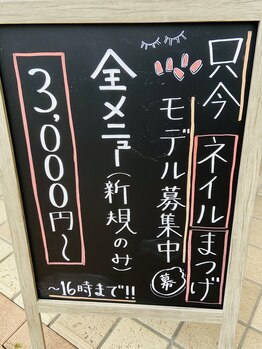 只今
ネイル まつげ
モデル募集中
募
全メニュー(新規のみ)
3,000円〜
〜16時まで!!